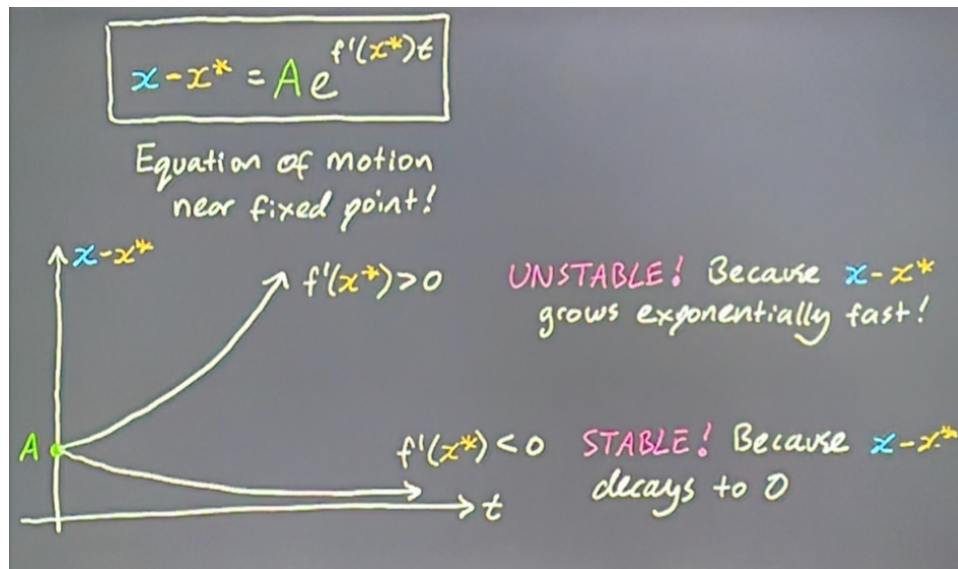 x-x* = A e^{f'(x*)t}
Equation of motion
near fixed point!
x-x*
f'(x*)>0
UNSTABLE! Because x-x*
grows exponentially fast!
A
f'(x*)<0
STABLE! Because x-x*
decays to 0
t